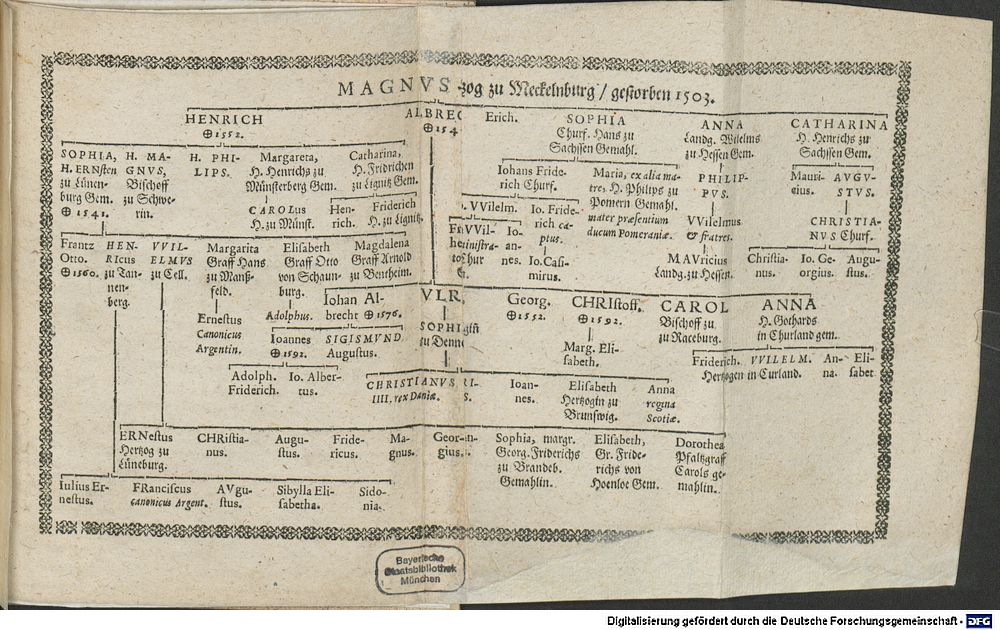 MAGNVS -zog zu Meckelnburg / gestorben 1503.
HENRICH
⊕ 1552.
ALBREC
⊕ 154
Erich.
SOPHIA
Churf. Hans zu
Sachssen Gemahl.
ANNA
Landg. Wilelms
zu Hessen Gem.
CATHARINA
H. Henrichs zu
Sachssen Gem.
SOPHIA,
H. ERNsten
zu Lünen-
burg Gem.
⊕ 1541.
H. MA-
GNVS,
Bischoff
zu Schwe-
rin.
H. PHI-
LIPS.
Margareta,
H. Henrichs zu
Münsterberg Gem.
Catharina,
H. Fridrichen
zu Lignitz Gem.
CAROLus
H. zu Münst.
Hen-
rich.
Friderich
H. zu Lignitz.
Iohans Fride-
rich Churf.
Maria, ex alia ma-
tre, H. Philips zu
Pomern Gemahl.
mater præsentium
ducum Pomeraniæ.
PHILIP-
PVS.
Mauri-
cius.
AVGV-
STVS.
VVilelm.
Io. Fride-
rich ca-
ptus.
VVilelmus
& fratres.
CHRISTIA-
NVS Churf.
Io-
an-
nes.
Io. Casi-
mirus.
MAVricius
Landg. zu Hessen.
Christia-
nus.
Io. Ge-
orgius.
Augu-
stus.
Frantz
Otto.
⊕ 1560.
HEN-
RICus
zu Tan-
nen-
berg.
VVIL-
ELMVS
zu Cell.
Margarita
Graff Hans
zu Manß-
feld.
Elisabeth
Graff Otto
von Schaun-
burg.
Magdalena
Graff Arnold
zu Bentheim.
Ernestus
Canonicus
Argentin.
Adolphus.
Iohan Al-
brecht ⊕ 1576.
VLR
Georg.
⊕ 1552.
CHRIstoff.
⊕ 1592.
CAROL
Bischoff zu
Raceburg.
ANNA
H. Gothards
in Churland gem.
Ioannes
⊕ 1592.
SIGISMVND
Augustus.
SOPHI
zu Denne
Marg. Eli-
sabeth.
Friderich.
VVILELM.
Hertzogen in Curland.
An-
na.
Eli-
sabet
Adolph.
Friderich.
Io. Alber-
tus.
CHRISTIANVS
IIII. rex Daniæ.
Ioan-
nes.
Elisabeth
Hertzogin zu
Brunswig.
Anna
regina
Scotiæ.
ERNestus
Hertzog zu
Lüneburg.
CHRistia-
nus.
Augu-
stus.
Fride-
ricus.
Ma-
gnus.
Geor-
gius.
Sophia, margr.
Georg. Friderichs
zu Brandeb.
Gemahlin.
Elisabeth,
Gr. Fride-
richs von
Hoenloe Gem.
Dorothea
Pfaltzgraff
Carols ge-
mahlin.
Iulius Er-
nestus.
FRanciscus
canonicus Argent.
AVgu-
stus.
Sibylla Eli-
sabetha.
Sido-
nia.
Bayerische
Staatsbibliothek
München
Digitalisierung gefördert durch die Deutsche Forschungsgemeinschaft - DFG